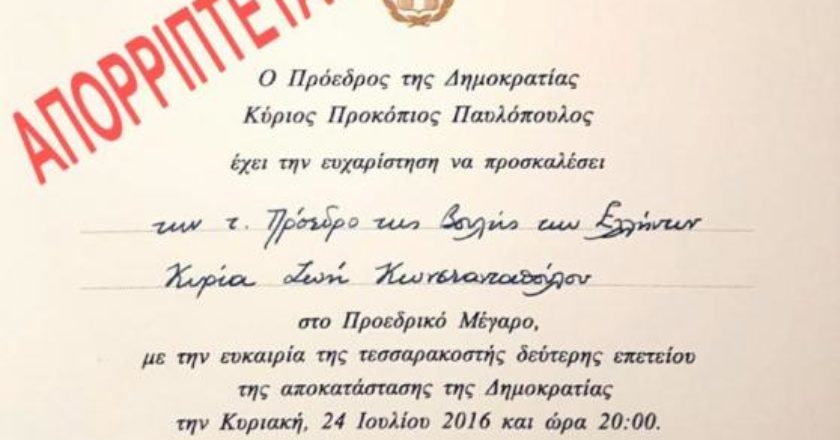 ΑΠΟΡΡΙΠΤΕΤΑ
Ο Πρόεδρος της Δημοκρατίας
Κύριος Προκόπιος Παυλόπουλος
έχει την ευχαρίστηση να προσκαλέσει
την τ. Πρόεδρο της Βουλής των Ελλήνων
Κυρία Ζωή Κωνσταντοπούλου
στο Προεδρικό Μέγαρο,
με την ευκαιρία της τεσσαρακοστής δεύτερης επετείου
της αποκατάστασης της Δημοκρατίας
την Κυριακή, 24 Ιουλίου 2016 και ώρα 20:00.